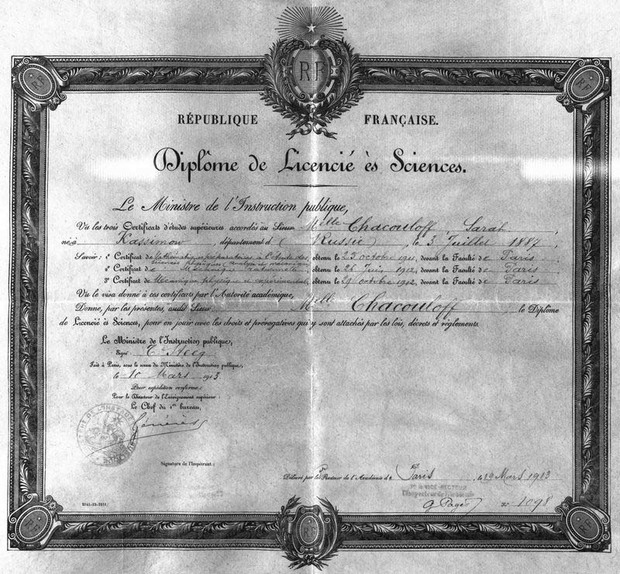 RF
RÉPUBLIQUE FRANÇAISE.
Diplôme de Licencié ès Sciences.
Le Ministre de l'Instruction publique,
Vu les trois Certificats d'études supérieures accordés au Sieur Melle Chacouloff Sarah
né à Kassimow, département d (Russie), le 3 Juillet 1887,
Savoir: 1° Certificat de Mathématiques préparatoires à l'étude des sciences physiques, obtenu le 23 octobre 1911, devant la Faculté de Paris
2° Certificat de Mécanique rationnelle, obtenu le 26 Juin 1912, devant la Faculté de Paris
3° Certificat de Mécanique physique et expérimentale, obtenu le 29 octobre 1912, devant la Faculté de Paris
Vu le visa donné à ces certificats par l'Autorité académique,
Donne, par les présentes, audit Sieur Melle Chacouloff le Diplôme
de Licencié ès Sciences, pour en jouir avec les droits et prérogatives qui y sont attachés par les lois, décrets et règlements.
Le Ministre de l'Instruction publique,
Signé T. Steeg
Fait à Paris, sous le sceau du Ministère de l'Instruction publique,
le 10 Mars 1913
Pour expédition conforme:
Pour le Directeur de l'Enseignement supérieur:
Le Chef du 1er bureau,
Signature de l'Impétrant:
Délivré par le Recteur de l'Académie de Paris le 29 Mars 1913
N° 1098